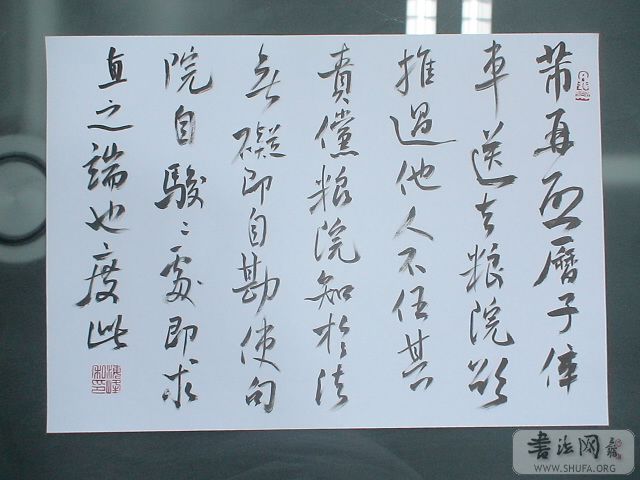 芾再曆子倖
車送去粮院欲
推過他人不任其
責儻粮院知於法
無礙即自勘使句
院自駿〻處即求
直之端也度此
書法网
WWW.SHUFA.ORG